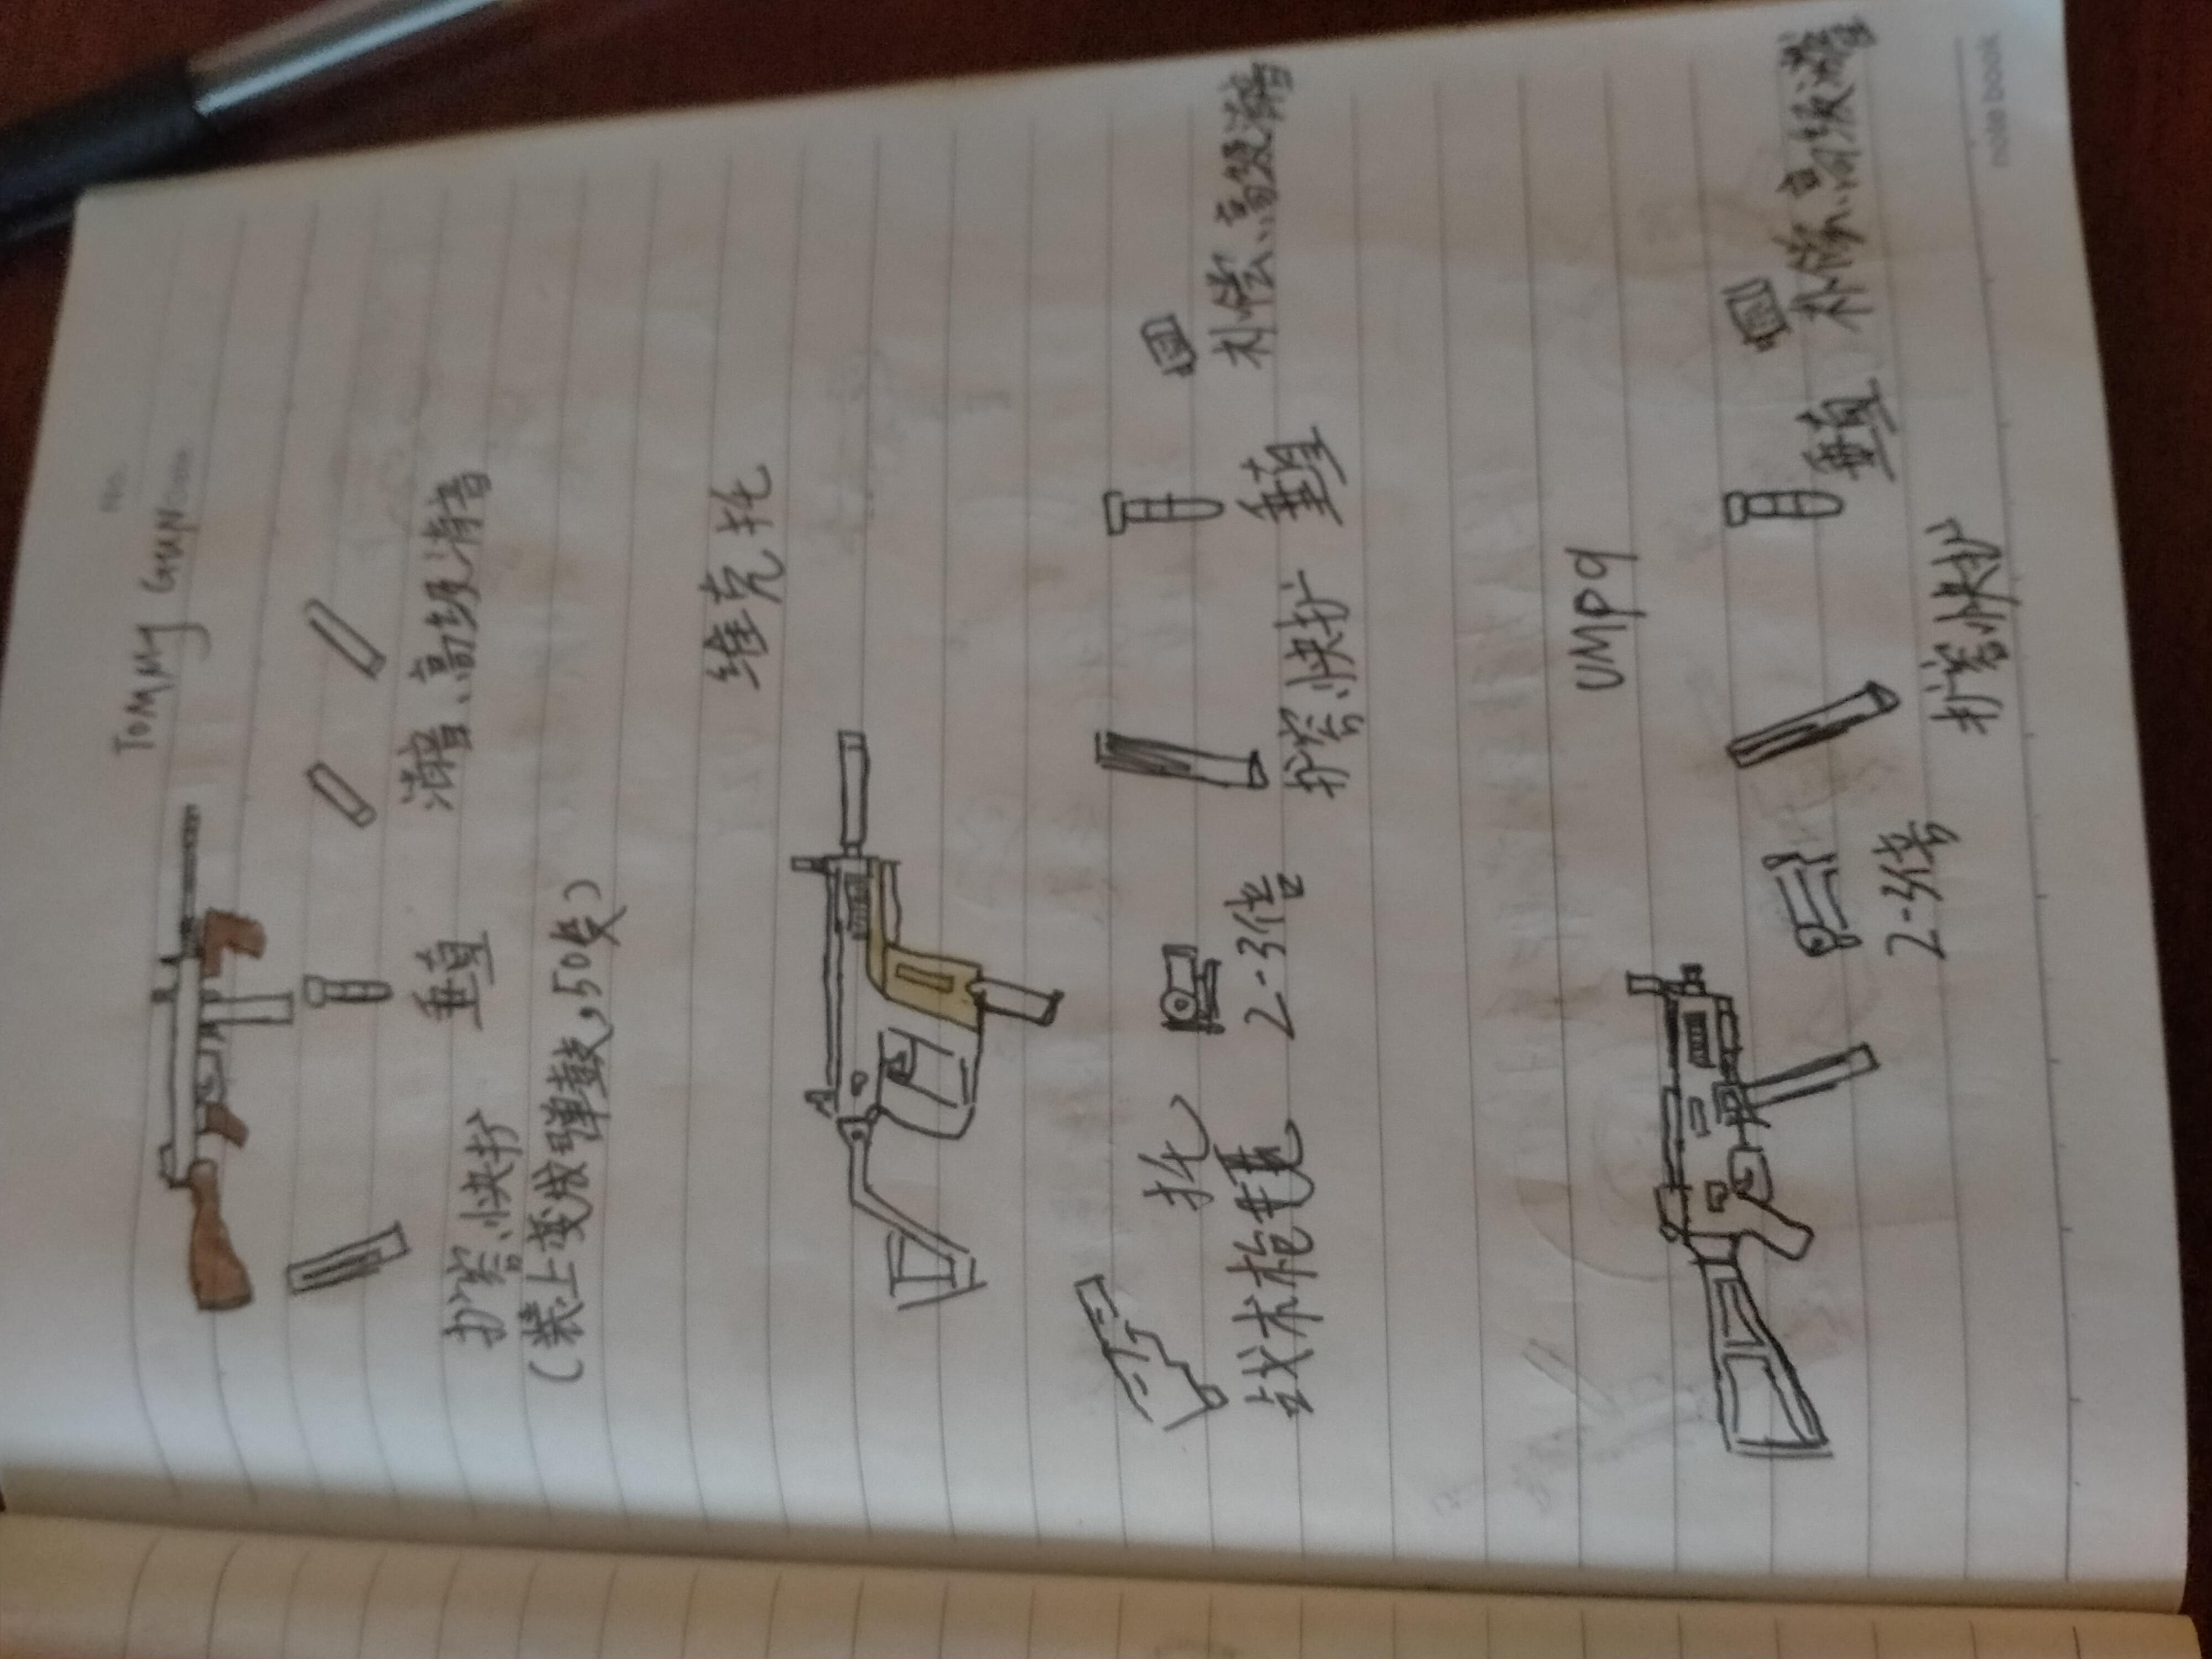 TOMMY GUN
消音、高级消音
垂直
扩容、快扩
(装上变成弹鼓，50发)
维克托
补偿、高级消音
垂直
扩容、快扩
2-3倍
托
战术枪托
UMP9
补偿、高级消音
垂直
扩容、快扩
2-3倍
note book